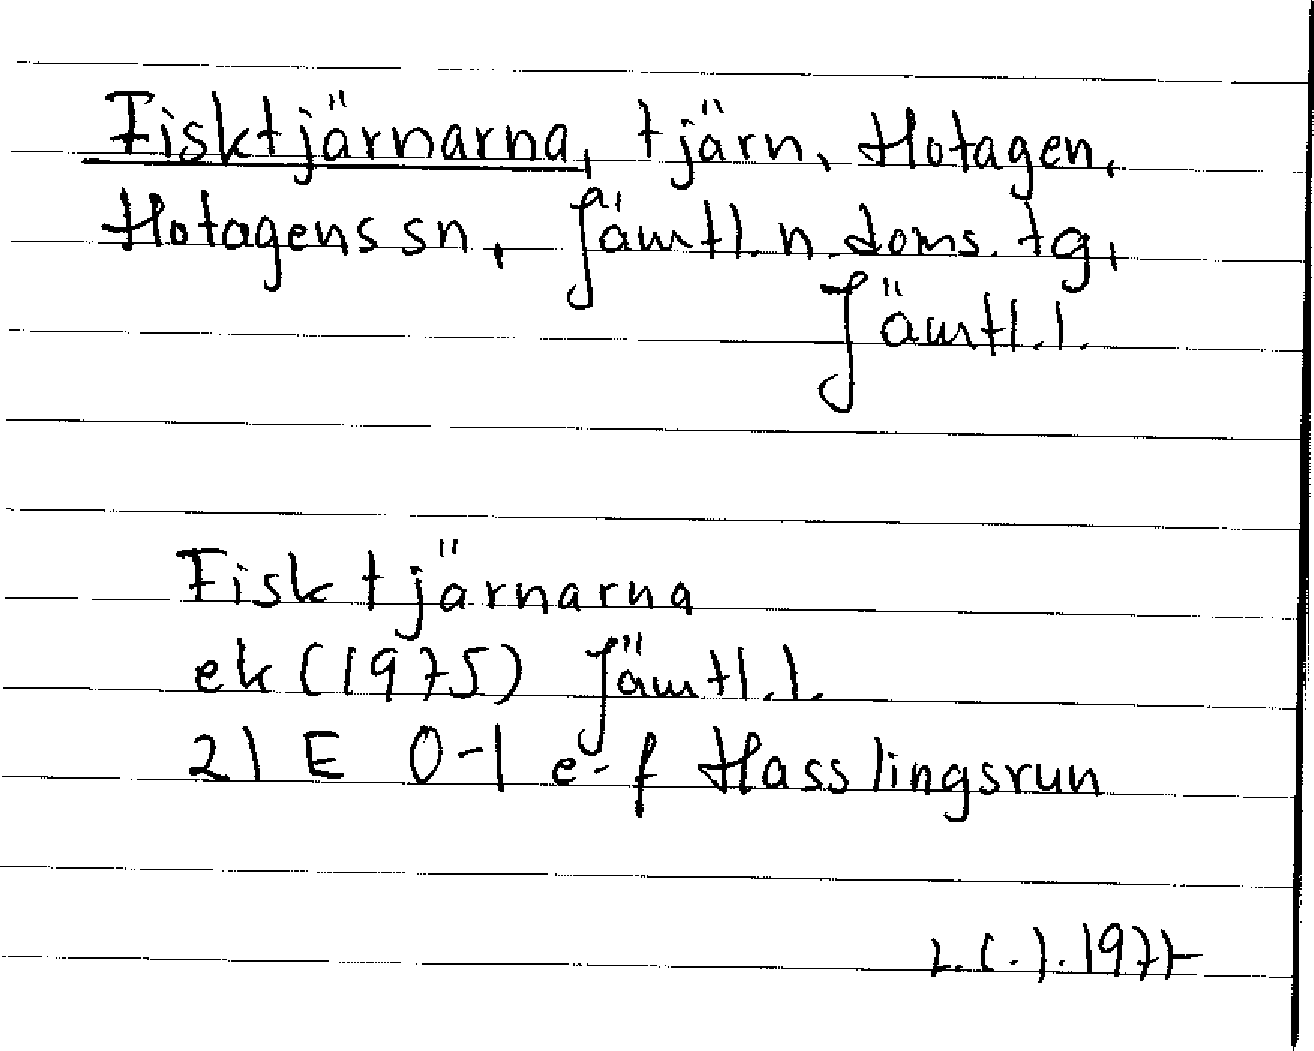 Fisktjärnarna, tjärn, Hotagen,
Hotagens sn, Jämtl. n. doms. tg,
Jämtl. l.
Fisktjärnarna
ek (1975) Jämtl. l.
21 E 0-1 e-f Hasslingsrun
1977